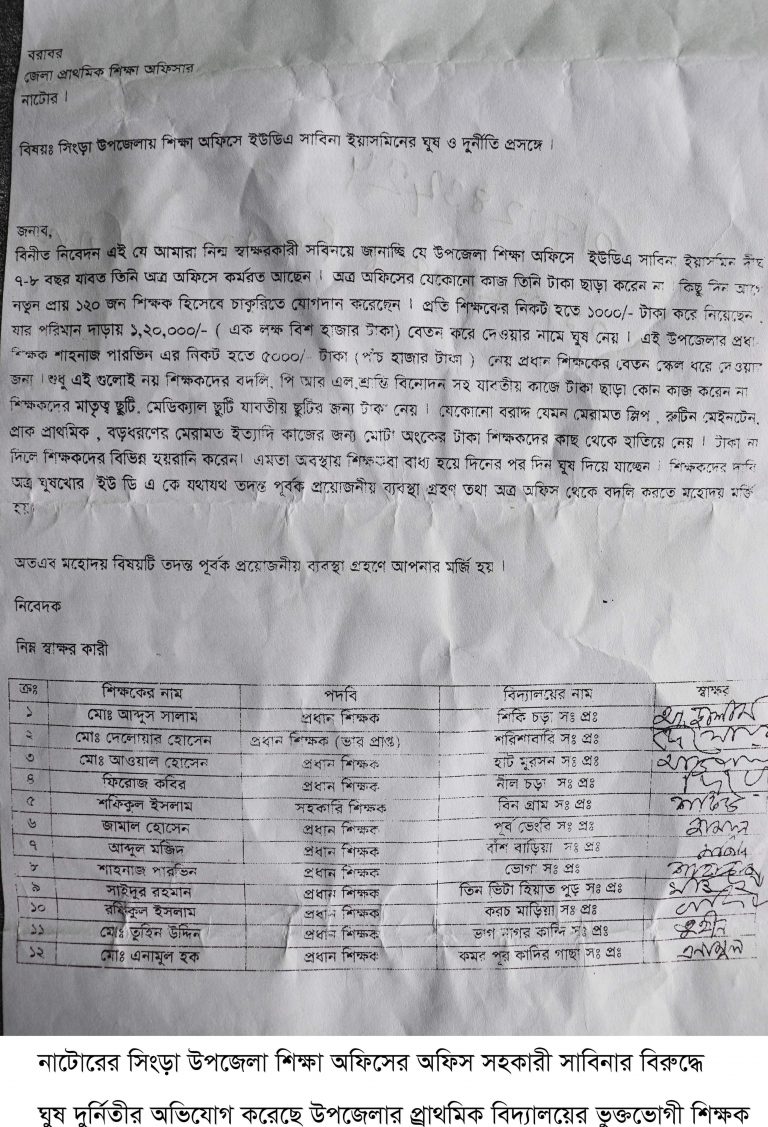 বরাবর
জেলা প্রাথমিক শিক্ষা অফিসার
নাটোর।
বিষয়ঃ সিংড়া উপজেলায় শিক্ষা অফিসে ইউডিএ সাবিনা ইয়াসমিনের ঘুষ ও দূর্নীতি প্রসঙ্গে।
জনাব,
বিনীত নিবেদন এই যে আমারা নিম্ন স্বাক্ষরকারী সবিনয়ে জানাচ্ছি যে উপজেলা শিক্ষা অফিসে ইউডিএ সাবিনা ইয়াসমিন দীর্ঘ
৭-৮ বছর যাবত তিনি অত্র অফিসে কর্মরত আছেন। অত্র অফিসের যেকোনো কাজ তিনি টাকা ছাড়া করেন না কিছু দিন আগে
নতুন প্রায় ১২০ জন শিক্ষক হিসেবে চাকুরিতে যোগদান করেছেন। প্রতি শিক্ষকের নিকট হতে ১০০০/- টাকা করে নিয়েছেন
যার পরিমান দাড়ায় ১,২০,০০০/- ( এক লক্ষ বিশ হাজার টাকা) বেতন করে দেওয়ার নামে ঘুষ নেয়। এই উপজেলার প্রধান
শিক্ষক শাহনাজ পারভিন এর নিকট হতে ৫০০০/- টাকা (পাঁচ হাজার টাকা ) নেয় প্রধান শিক্ষকের বেতন স্কেল ধরে দেওয়ার
জন্য। শুধু এই গুলোই নয় শিক্ষকদের বদলি, পি আর এল,শ্রান্তি বিনোদন সহ যাবতীয় কাজে টাকা ছাড়া কোন কাজ করেন না
শিক্ষকদের মাতৃত্ব ছুটি, মেডিক্যাল ছুটি যাবতীয় ছুটির জন্য টাকা নেয়। যেকোনো বরাদ্দ যেমন মেরামত স্লিপ , রুটিন মেইনটেন,
প্রাক প্রাথমিক , বড়ধরণের মেরামত ইত্যাদি কাজের জন্য মোটা অংকের টাকা শিক্ষকদের কাছ থেকে হাতিয়ে নেয়। টাকা না
দিলে শিক্ষকদের বিভিন্ন হয়রানি করেন। এমতা অবস্থায় শিক্ষকরা বাধ্য হয়ে দিনের পর দিন ঘুষ দিয়ে যাচ্ছেন। শিক্ষকদের দাবি
অত্র ঘুষখোর ইউ ডি এ কে যথাযথ তদন্ত পূর্বক প্রয়োজনীয় ব্যবস্থা গ্রহণ তথা অত্র অফিস থেকে বদলি করতে মহোদয় মর্জি
হয়।
অতএব মহোদয় বিষয়টি তদন্ত পূর্বক প্রয়োজনীয় ব্যবস্থা গ্রহণে আপনার মর্জি হয়।
নিবেদক
নিম্ন স্বাক্ষর কারী
ক্রঃ শিক্ষকের নাম পদবি বিদ্যালয়ের নাম স্বাক্ষর
১ মোঃ আব্দুস সালাম প্রধান শিক্ষক শিকি চড়া সঃ প্রঃ
২ মোঃ দেলোয়ার হোসেন প্রধান শিক্ষক (ভার প্রাপ্ত) শরিশাবারি সঃ প্রঃ
৩ মোঃ আওয়াল হোসেন প্রধান শিক্ষক হাট মুরসন সঃ প্রঃ
৪ ফিরোজ কবির প্রধান শিক্ষক নীল চড়া সঃ প্রঃ
৫ শফিকুল ইসলাম সহকারি শিক্ষক বিন গ্রাম সঃ প্রঃ
৬ জামাল হোসেন প্রধান শিক্ষক পূর্ব ভেংরি সঃ প্রঃ
৭ আব্দুল মজিদ প্রধান শিক্ষক বাঁশ বাড়িয়া সঃ প্রঃ
৮ শাহনাজ পারভিন প্রধান শিক্ষক ভোগা সঃ প্রঃ
৯ সাইদুর রহমান প্রধান শিক্ষক তিন ভিটা হিয়াত পুড় সঃ প্রঃ
১০ রফিকুল ইসলাম প্রধান শিক্ষক করচ মাড়িয়া সঃ প্রঃ
১১ মোঃ তুহিন উদ্দিন প্রধান শিক্ষক ভাগ নাগর কান্দি সঃ প্রঃ তুহীন
১২ মোঃ এনামুল হক প্রধান শিক্ষক কমর পুর কাদির গাছা সঃ প্রঃ এনামুল
নাটোরের সিংড়া উপজেলা শিক্ষা অফিসের অফিস সহকারী সাবিনার বিরুদ্ধে
ঘুষ দুর্নিতীর অভিযোগ করেছে উপজেলার প্রাথমিক বিদ্যালয়ের ভুক্তভোগী শিক্ষক